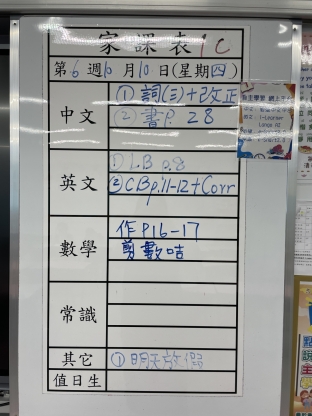 家課表 1C
第 6 週 10 月 10 日(星期四)
中文
① 詞(三)+改正
(2) 書P. 28
英文
① LB p.8
② CBp.11-12+Corr
數學
作P16-17
剪數咭
常識
其它
① 明天放假
值日生